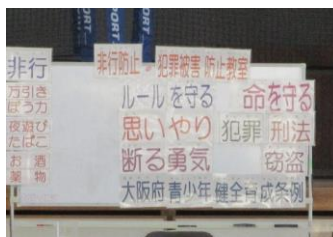 非行
万引き
ぼう力
夜遊び
たばこ
お酒
薬物
非行防止・犯罪被害防止教室
ルールを守る 命を守る
思いやり 犯罪 刑法
断る勇気 窃盗
大阪府青少年健全育成条例